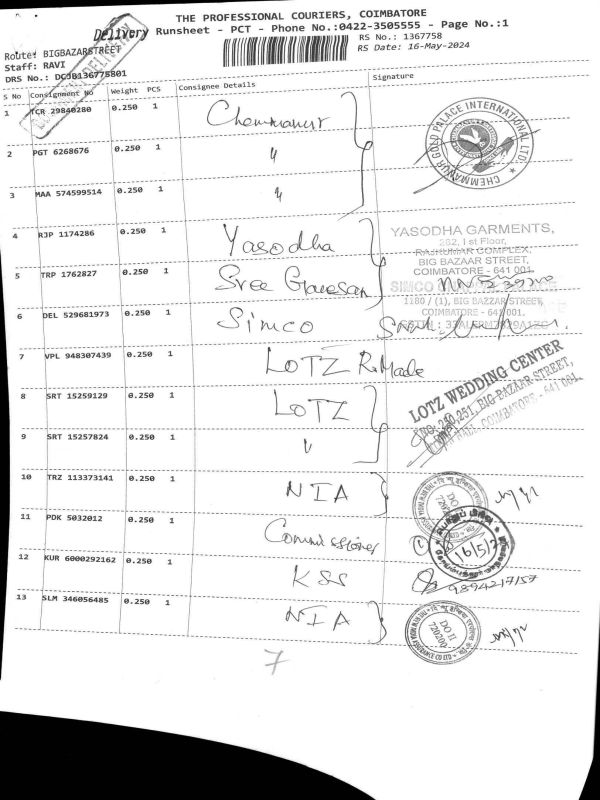 THE PROFESSIONAL COURIERS, COIMBATORE
Delivery Runsheet - PCT - Phone No.:0422-3505555 - Page No.:1
Route: BIGBAZARSTREET
RS No.: 1367758
Staff: RAVI
RS Date: 16-May-2024
DRS No.: DCJB136775801
S No Consignment No Weight PCS Consignee Details Signature
1 TCR 29840280 0.250 1 Chemmanur
CHEMMANUR GOLD PALACE INTERNATIONAL LTD
2 PGT 6268676 0.250 1 "
3 MAA 574599514 0.250 1 "
4 RJP 1174286 0.250 1 Yasodha
YASODHA GARMENTS,
282, I st Floor,
RAJKUMAR COMPLEX,
BIG BAZAAR STREET,
COIMBATORE - 641 001.
5 TRP 1762827 0.250 1 Sree Ganesan
SIMCO
1180 / (1), BIG BAZZAR STREET,
COIMBATORE - 641 001.
6 DEL 529681973 0.250 1 Simco
7 VPL 948307439 0.250 1 LOTZ R.Made
LOTZ WEDDING CENTER
BIG BAZAAR STREET,
COIMBATORE - 641 001.
8 SRT 15259129 0.250 1 LOTZ
9 SRT 15257824 0.250 1 "
10 TRZ 113373141 0.250 1 NIA
11 PDK 5032012 0.250 1 Commissioner
16/5/2
12 KUR 6000292162 0.250 1 KSS
9894217157
13 SLM 346056485 0.250 1 NIA
DO II
720200
7